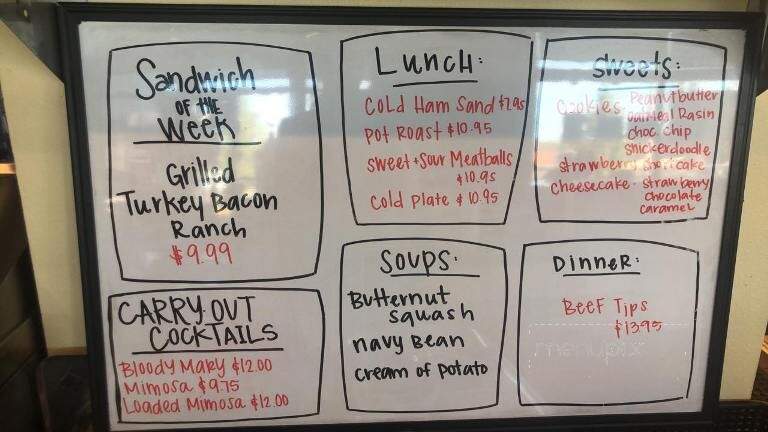 Sandwich
OF THE
Week
Grilled
Turkey Bacon
Ranch
$9.99
Lunch:
Cold Ham Sand $7.95
Pot Roast $10.95
Sweet + Sour Meatballs
$10.95
Cold Plate $10.95
Sweets:
Cookies- Peanutbutter
oatmeal Rasin
choc chip
snickerdoodle
strawberry shortcake
cheesecake - strawberry
chocolate
caramel
CARRY OUT
COCKTAILS
Bloody Mary $12.00
Mimosa $9.75
Loaded Mimosa $12.00
Soups:
Butternut
squash
navy Bean
cream of potato
Dinner:
Beef Tips
$13.95
menupix